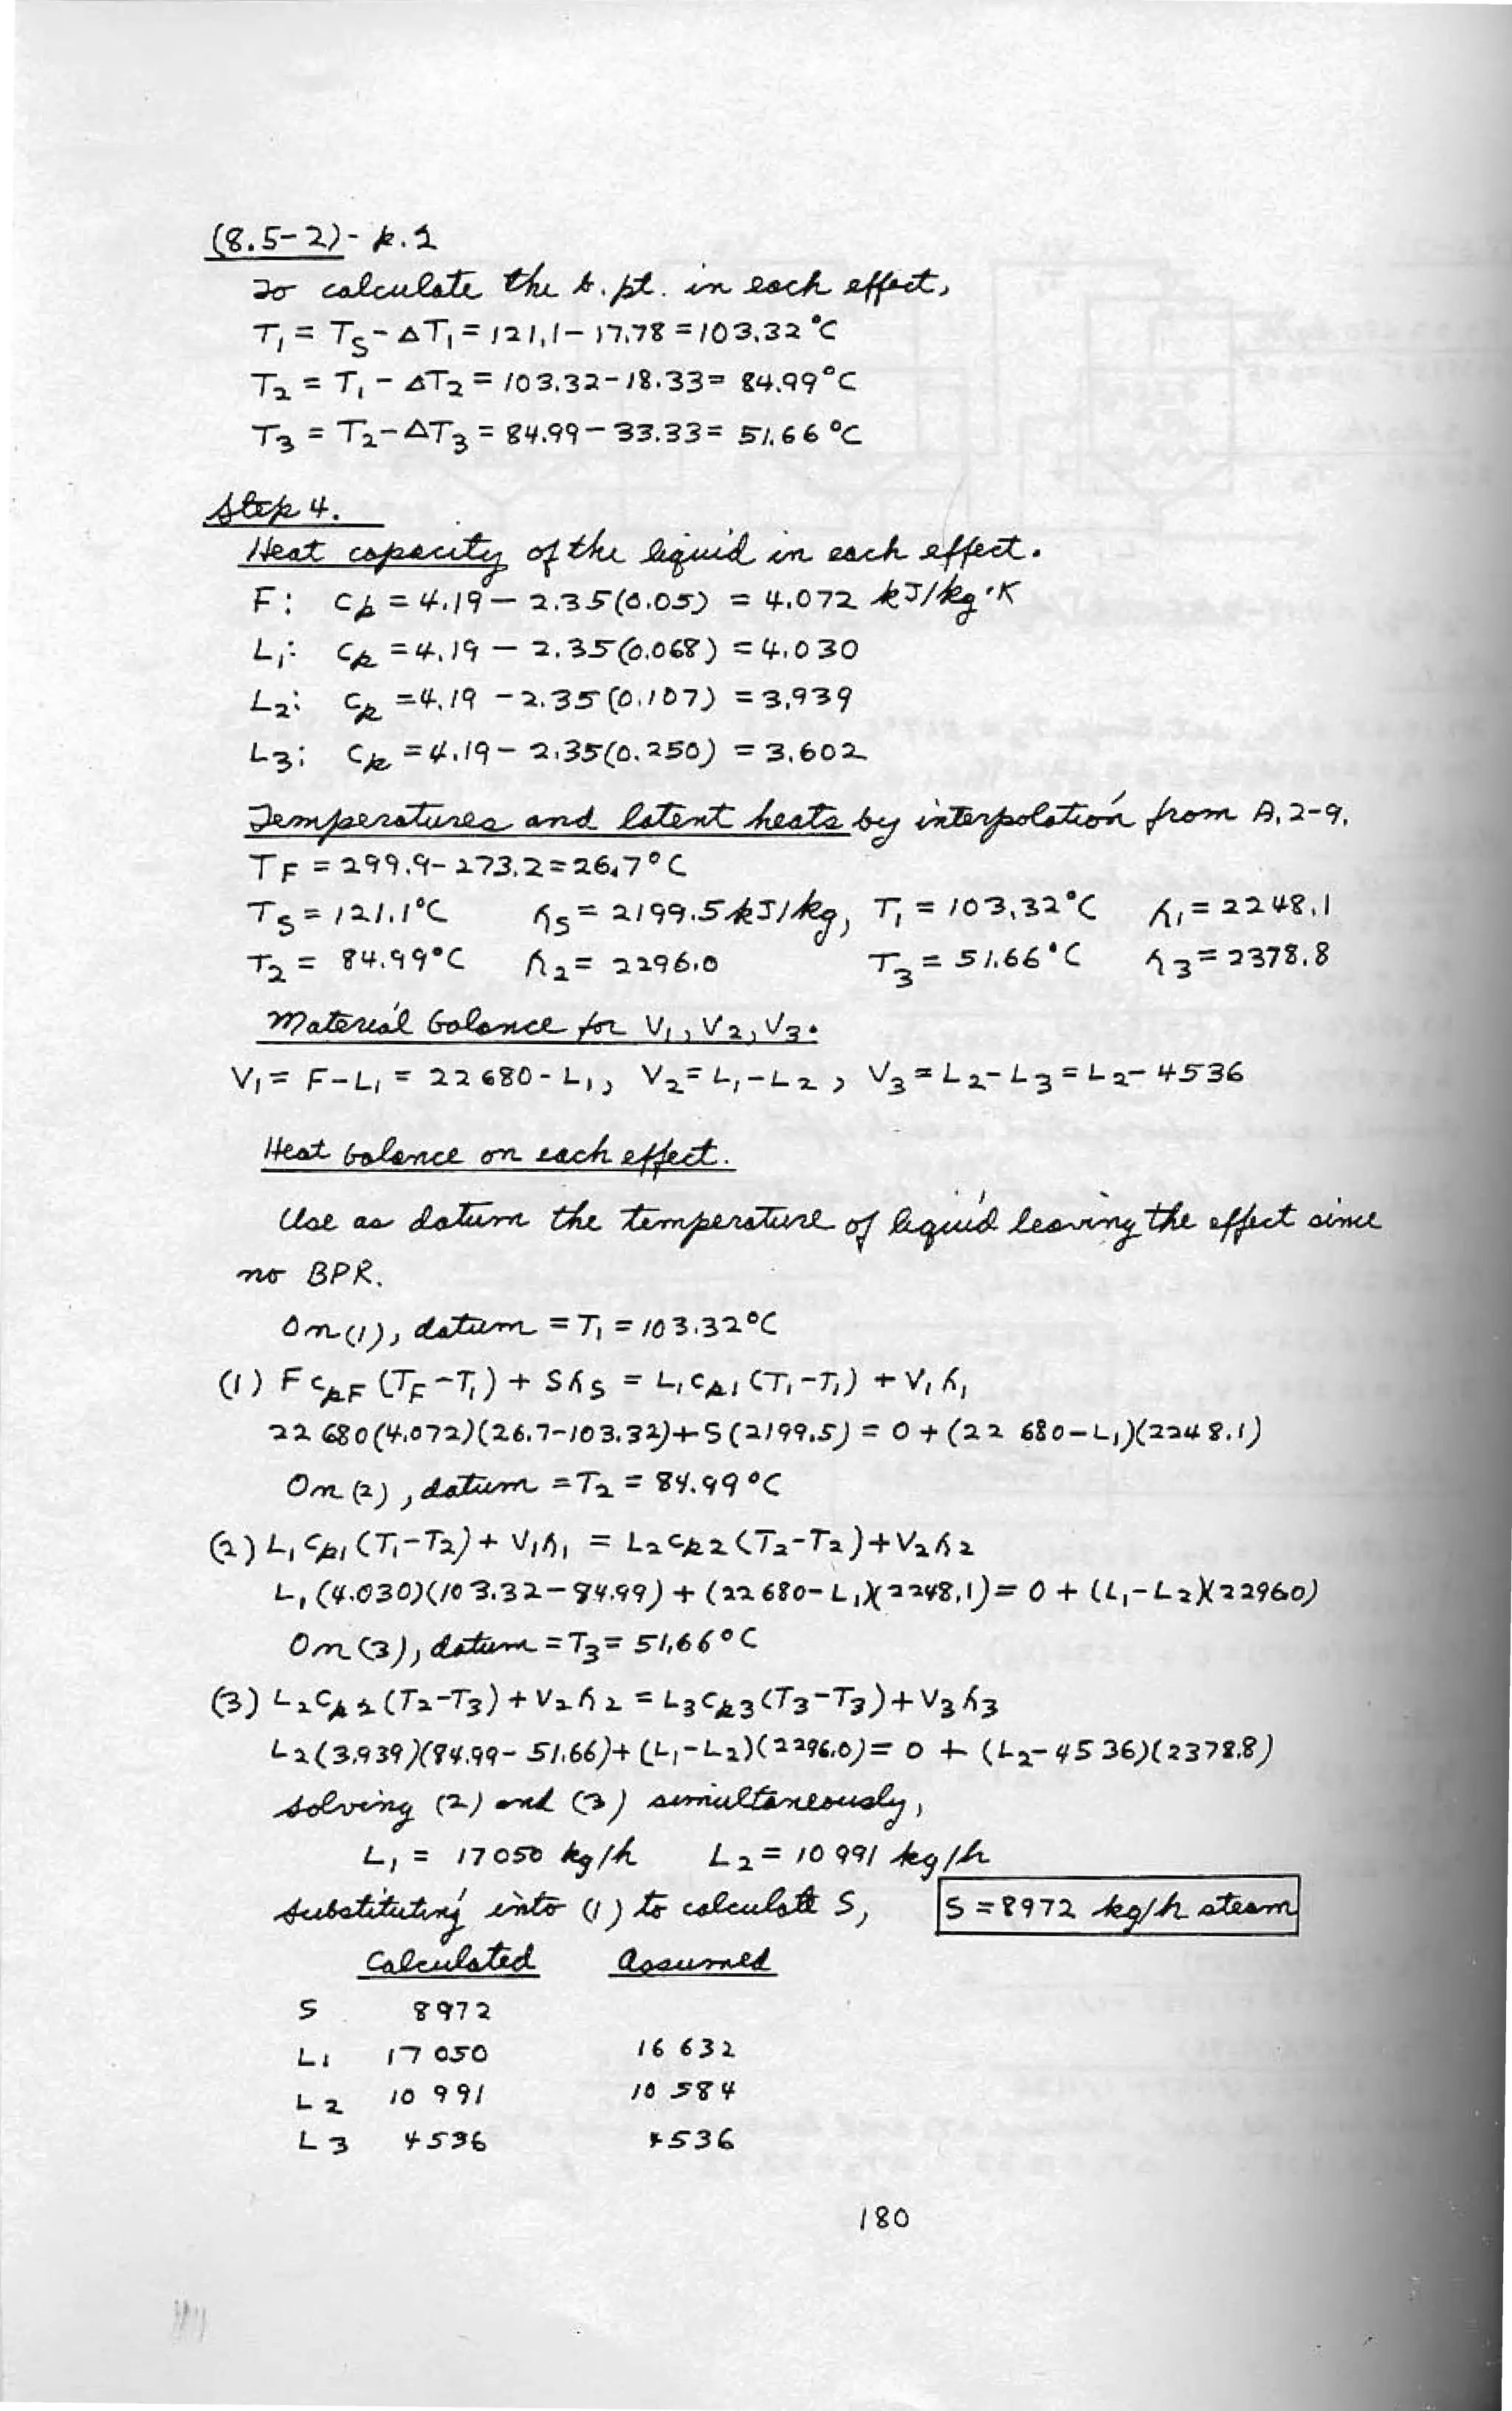 (8.5-2)- p.2
To calculate the b.pt. in each effect,
T₁ = T_S - ΔT₁ = 121.1 - 17.78 = 103.32 °C
T₂ = T₁ - ΔT₂ = 103.32 - 18.33 = 84.99 °C
T₃ = T₂ - ΔT₃ = 84.99 - 33.33 = 51.66 °C
Step 4.
Heat capacity of the liquid in each effect.
F: cp = 4.19 - 2.35(0.05) = 4.072 kJ/kg·K
L₁: cp = 4.19 - 2.35(0.068) = 4.030
L₂: cp = 4.19 - 2.35(0.107) = 3.939
L₃: cp = 4.19 - 2.35(0.250) = 3.602
Temperatures and latent heats by interpolation from A.2-9.
T_F = 299.9 - 273.2 = 26.7 °C
T_S = 121.1 °C λ_S = 2199.5 kJ/kg, T₁ = 103.32 °C λ₁ = 2248.1
T₂ = 84.99 °C λ₂ = 2296.0 T₃ = 51.66 °C λ₃ = 2378.8
Material balance for V₁, V₂, V₃.
V₁ = F - L₁ = 22 680 - L₁, V₂ = L₁ - L₂, V₃ = L₂ - L₃ = L₂ - 4536
Heat balance on each effect.
Use as datum the temperature of liquid leaving the effect since
no BPR.
On (1), datum = T₁ = 103.32 °C
(1) F cpF (T_F - T₁) + Sλ_S = L₁cp₁(T₁ - T₁) + V₁λ₁
22 680(4.072)(26.7-103.32) + S(2199.5) = 0 + (22 680 - L₁)(2248.1)
On (2), datum = T₂ = 84.99 °C
(2) L₁cp₁(T₁ - T₂) + V₁λ₁ = L₂cp₂(T₂ - T₂) + V₂λ₂
L₁(4.030)(103.32 - 84.99) + (22 680 - L₁)(2248.1) = 0 + (L₁ - L₂)(2296.0)
On (3), datum = T₃ = 51.66 °C
(3) L₂cp₂(T₂ - T₃) + V₂λ₂ = L₃cp₃(T₃ - T₃) + V₃λ₃
L₂(3.939)(84.99 - 51.66) + (L₁ - L₂)(2296.0) = 0 + (L₂ - 4536)(2378.8)
Solving (2) and (3) simultaneously,
L₁ = 17 050 kg/h L₂ = 10 991 kg/h
Substituting into (1) to calculate S, S = 8972 kg/h steam
Calculated Assumed
S 8972
L₁ 17 050 16 632
L₂ 10 991 10 584
L₃ 4536 4536
180